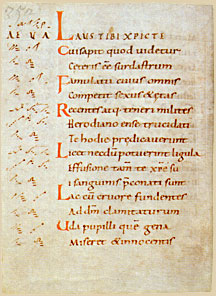 AEUA LAUS TIBI XPICTE
Cui sapit quod uidetur
Ceteris esse surdastrum
Famulatu cuius omnis
Competit sexus & etas
Recentes atq; teneri milites
Herodiano ense trucidati
Te hodie predicauerunt
Licet necdu potuerunt ligula
Effusione tam te xpe sui
Sanguinis pconati sunt
Lac cu cruore fundentes
Ad dm clamitaturum
Uda pupilli que gena
Miseret & innocentis